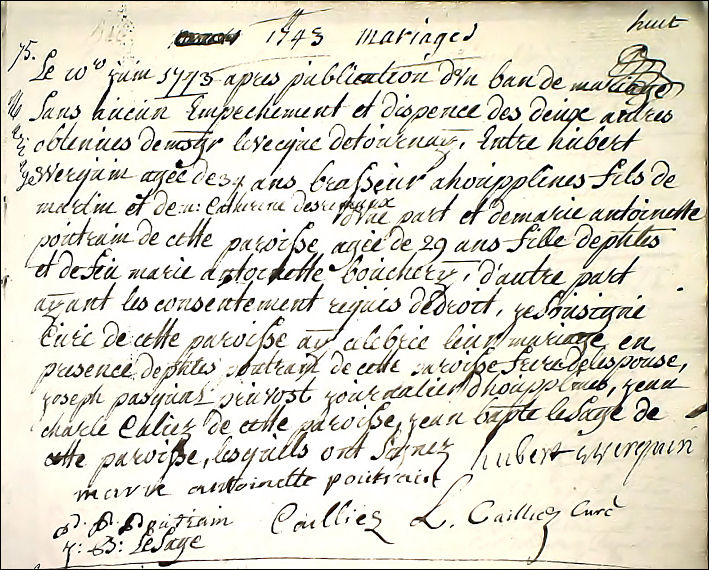 1743 mariages
huit
75.
Le 10e juin 1773 apres publication d'un ban de mariage
Mariage
Sans aucun Empechement et dispence des deux autres
obtenues de msgr levecque detournay, Entre hubert
Werquin agée de 34 ans brasseur a houpplines fils de
martin et de Catherine desremaux d'une part et de marie antoinette
poutrain de cette paroisse agée de 29 ans fille de philes
et de feu marie antoinette bouchery, d'autre part
ayant les consentement requis dedroit, je sousigné
Curé de cette paroisse ay celebrée leur mariage en
presence de philes poutrain de cette paroisse frere de lespouse,
joseph pasquial prevost journalier d'houpplines, jean
charle Caliez de cette paroisse, jean bapte leSage de
cette paroisse, lesquels ont Signez hubert Werquin
marie antoinette poutrain
p. Poutrain Cailliez L. Cailliez Curé
j: B: LeSage